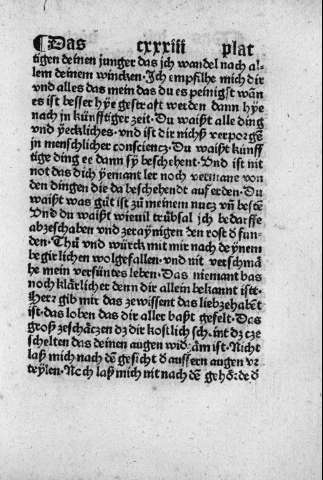 ¶Das cxxxiii plat
tigen deinen junger das jch wandel nach al-
lem deinem wincken. Jch empfilhe mich dir
vnd alles das mein das du es peinigst wañ
es ist besser hye gestraft werden dann hye
nach jn künfftiger zeit. Du waißt alle ding
vnd yeckliches. vnd ist dir nichß verporgẽ
jn menschlicher consciencz. Du waißt künff
tige ding ee dann sy beschehent. Vnd ist nit
not das dich yemant ler noch vermane von
den dingen die da beschehendt auf erden. Du
waißt was gůt ist zů meinem nucz vñ bestẽ
Vnd du waißt wieuil trübsal jch bedarffe
abzeschaben vnd zeraynigen den rost d̃ sun-
den. Thů vnd würck mit mir nach deynem
begirlichen wolgefallen. vnd nit verschmä
he mein versüntes leben. Das niemant bas
noch klärlicher denn dir allein bekannt istt.
Herr gib mir das zewissent das liebzehabẽt
ist. das loben das dir aller baßt gefelt. Das
groß zeschäczen dz dir kostlich schint dz cze
schelten das deinen augen widãm ist. Nicht
laß mich nach dẽ gesicht d̃ aussern augen vr
teylen. Noch laß mich nit nach dẽ gehörde d̃